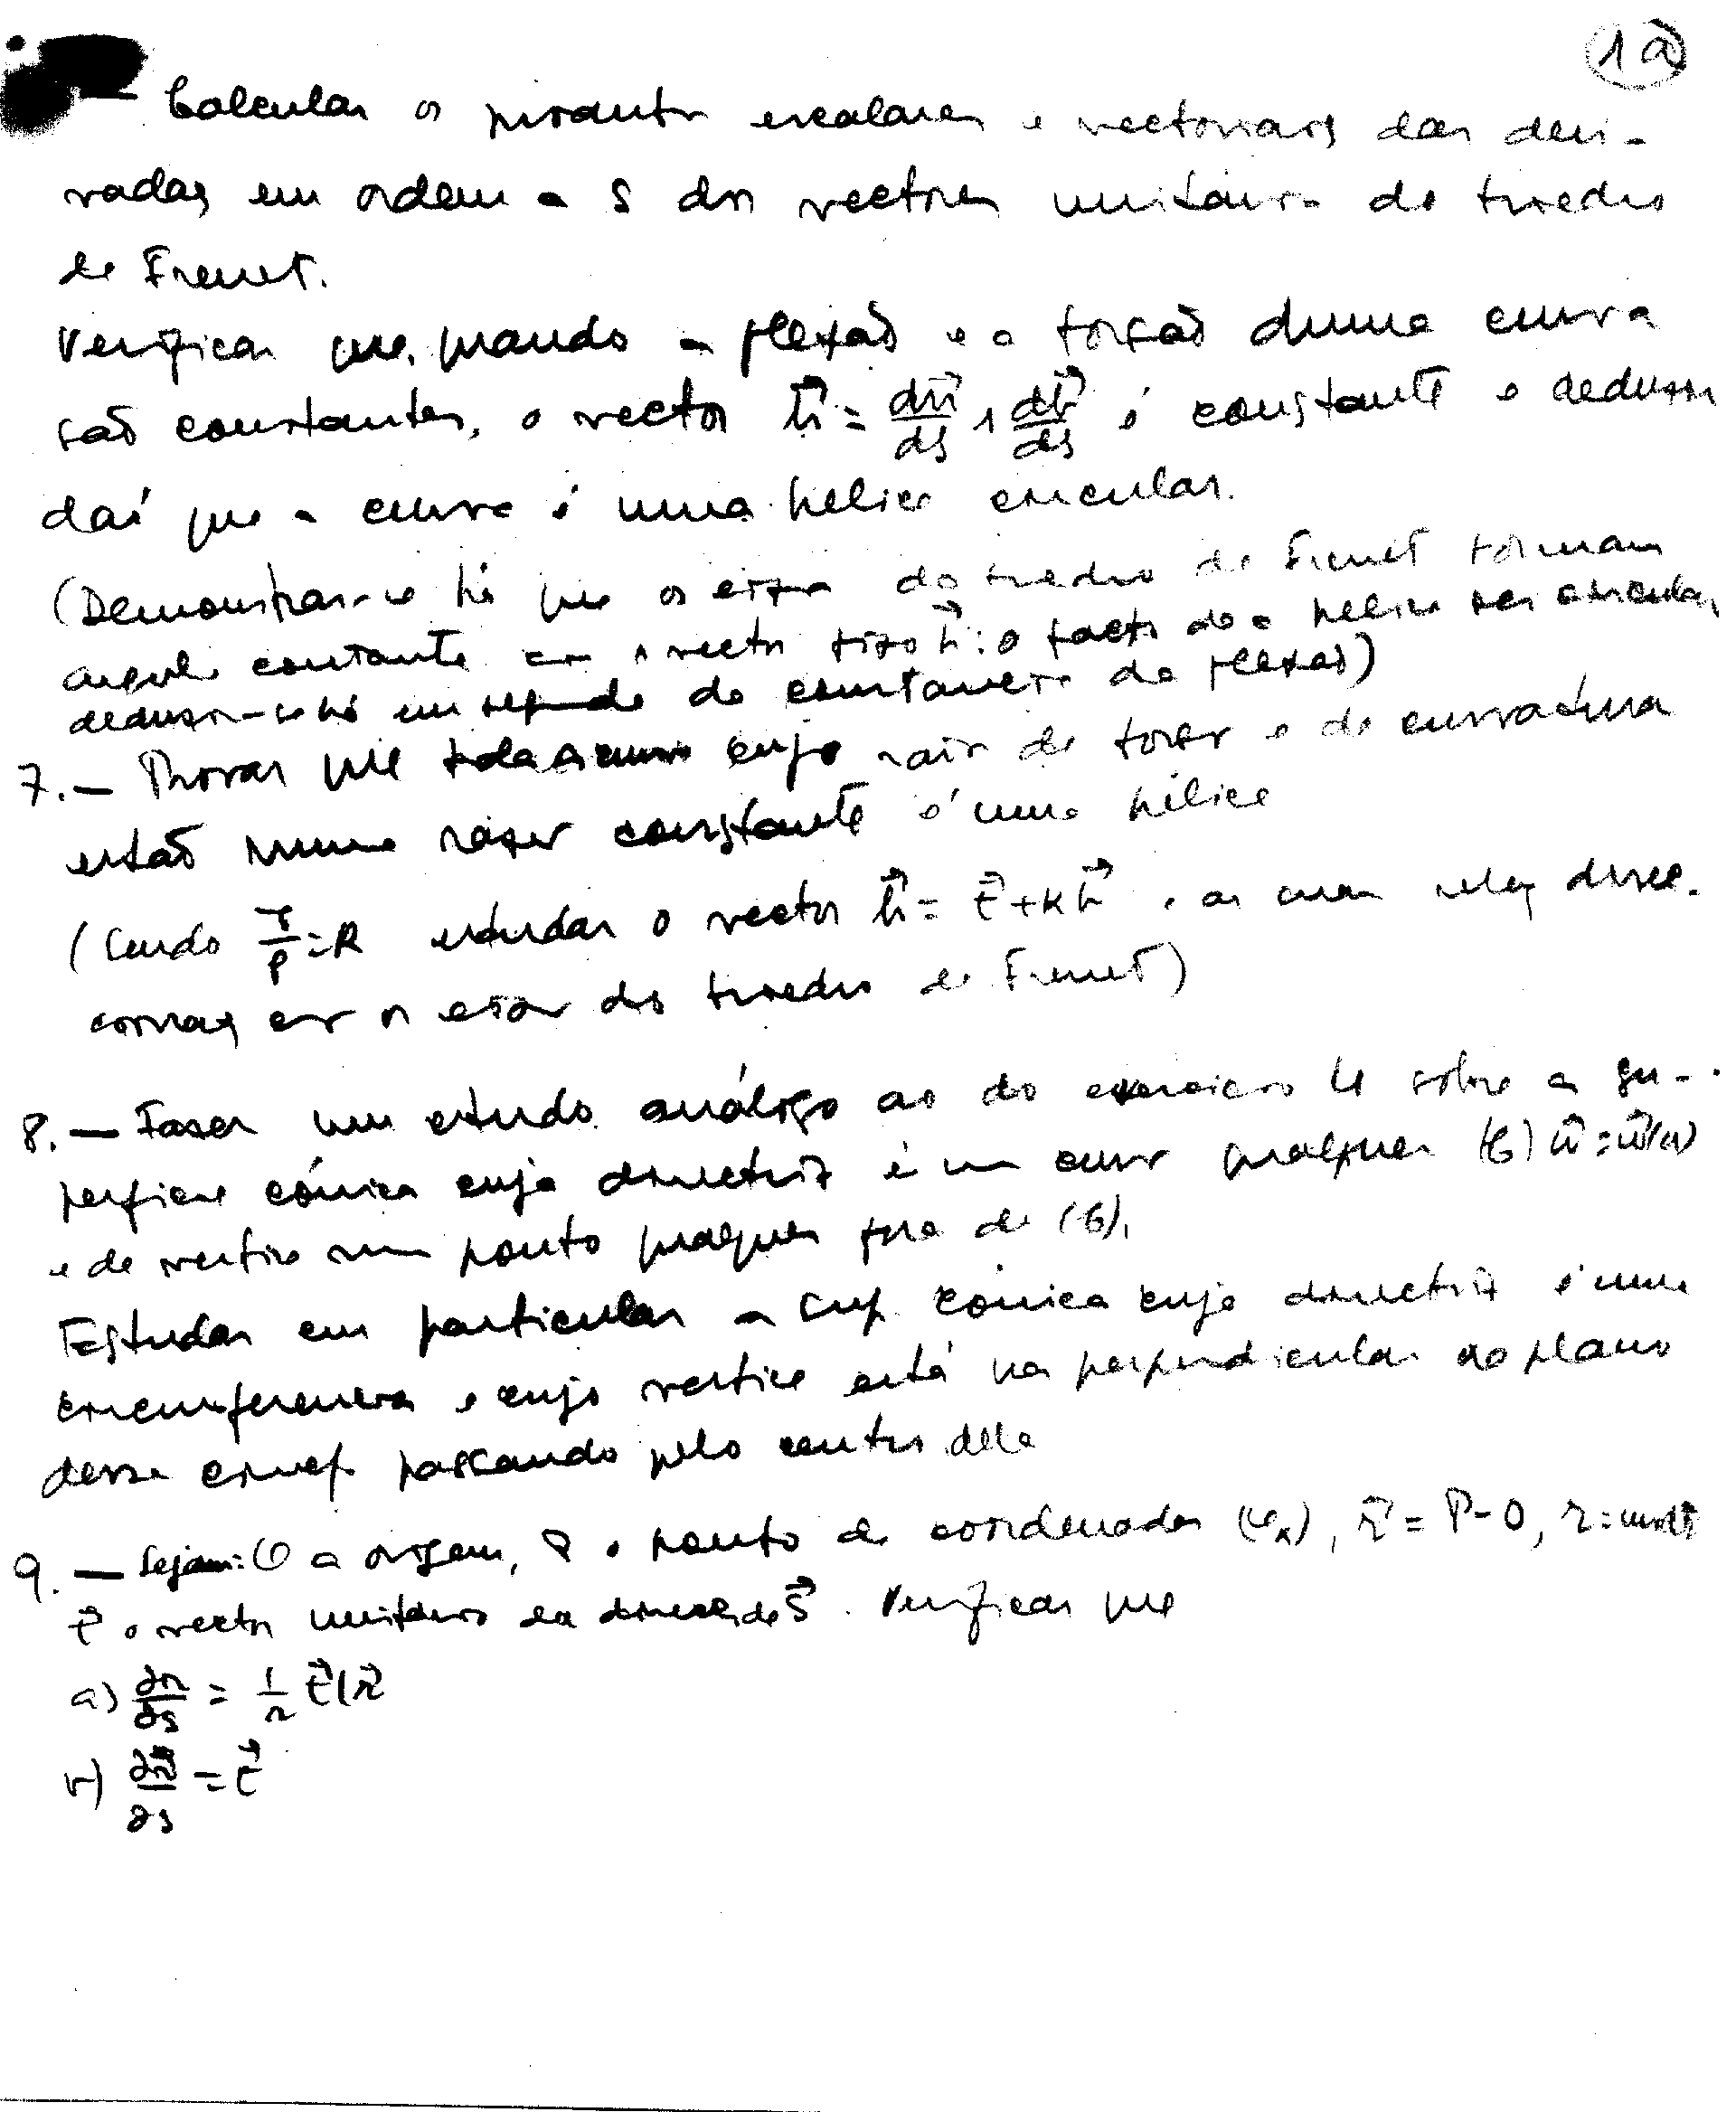 1a)
— Calcular os produtos escalares e vectoriais das deri-
vadas em ordem a s dos vectores unitários do triedro
de Frenet.
Verificar que, quando a flexão e a torsão duma curva
são constantes, o vector h⃗ = dn⃗/ds ∧ db⃗/ds é constante e deduzir
daí que a curva é uma hélice circular.
(Demonstrar-se há que os eixos do triedro de Frenet formam
angulo constante com o vector fixo h⃗: o facto de a hélice ser circular
deduzir-se há em seguida da constancia da flexão)
7. — Provar que toda a curva cujos raios de torsão e de curvatura
estão numa razão constante é uma hélice
(Sendo τ/ρ = K estudar o vector h⃗ = t⃗ + K b⃗ e as suas relações
com os eixos do triedro de Frenet)
8. — Fazer um estudo análogo ao do exercicio 4 sobre a su-
perficie cónica cuja directriz é uma curva qualquer (C) u⃗ = u⃗(u)
e de vertice num ponto qualquer fora de (C).
Estudar em particular a sup. cónica cuja directriz é uma
circumferencia e cujo vertice está na perpendicular ao plano
dessa circumf. passando pelo centro dela
9. — Sejam: O a origem, P o ponto de coordenadas, r⃗ = P - O, r = mod r⃗
t⃗ o vector unitário da direcção de s⃗. Verificar que
a) ∂r/∂s = 1/r t⃗ | r⃗
b) ∂r⃗/∂s = t⃗